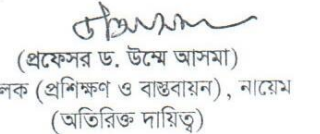 (প্রফেসর ড. উম্মে আসমা)
লক (প্রশিক্ষণ ও বাস্তবায়ন), নায়েম
(অতিরিক্ত দায়িত্ব)